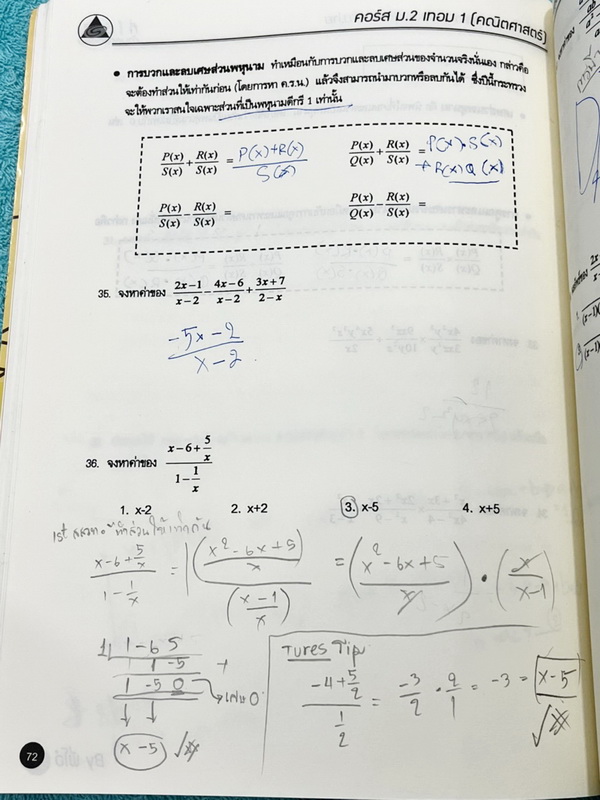 คอร์ส ม.2 เทอม 1 (คณิตศาสตร์)
• การบวกและลบเศษส่วนพหุนาม ทำเหมือนกับการบวกและลบเศษส่วนของจำนวนจริงนั่นเอง กล่าวคือ
จะต้องทำส่วนให้เท่ากันก่อน (โดยการหา ค.ร.น.) แล้วจึงสามารถนำมาบวกหรือลบกันได้ ซึ่งปีนี้กระทรวง
จะให้พวกเราสนใจเฉพาะส่วนที่เป็นพหุนามดีกรี 1 เท่านั้น
P(x)/S(x) + R(x)/S(x) = P(x)+R(x)/S(x)
P(x)/Q(x) + R(x)/S(x) = P(x)·S(x) + R(x)Q(x)
P(x)/S(x) − R(x)/S(x) =
P(x)/Q(x) − R(x)/S(x) =
35. จงหาค่าของ 2x−1/x−2 − 4x−6/x−2 + 3x+7/2−x
−5x−2/x−2
36. จงหาค่าของ x−6+5/x / 1−1/x
1. x-2 2. x+2 3. x-5 4. x+5
x−6+5/x / 1−1/x = (x²−6x+5/x) / (x−1/x) = (x²−6x+5/x) · (x/x−1)
1 1 −6 5
1 −5 +
1 −5 0 → เศษ 0
x −5
Tures Tip
−4+5/2 / 1/2 = −3/2 · 2/1 = −3 = x−5
72